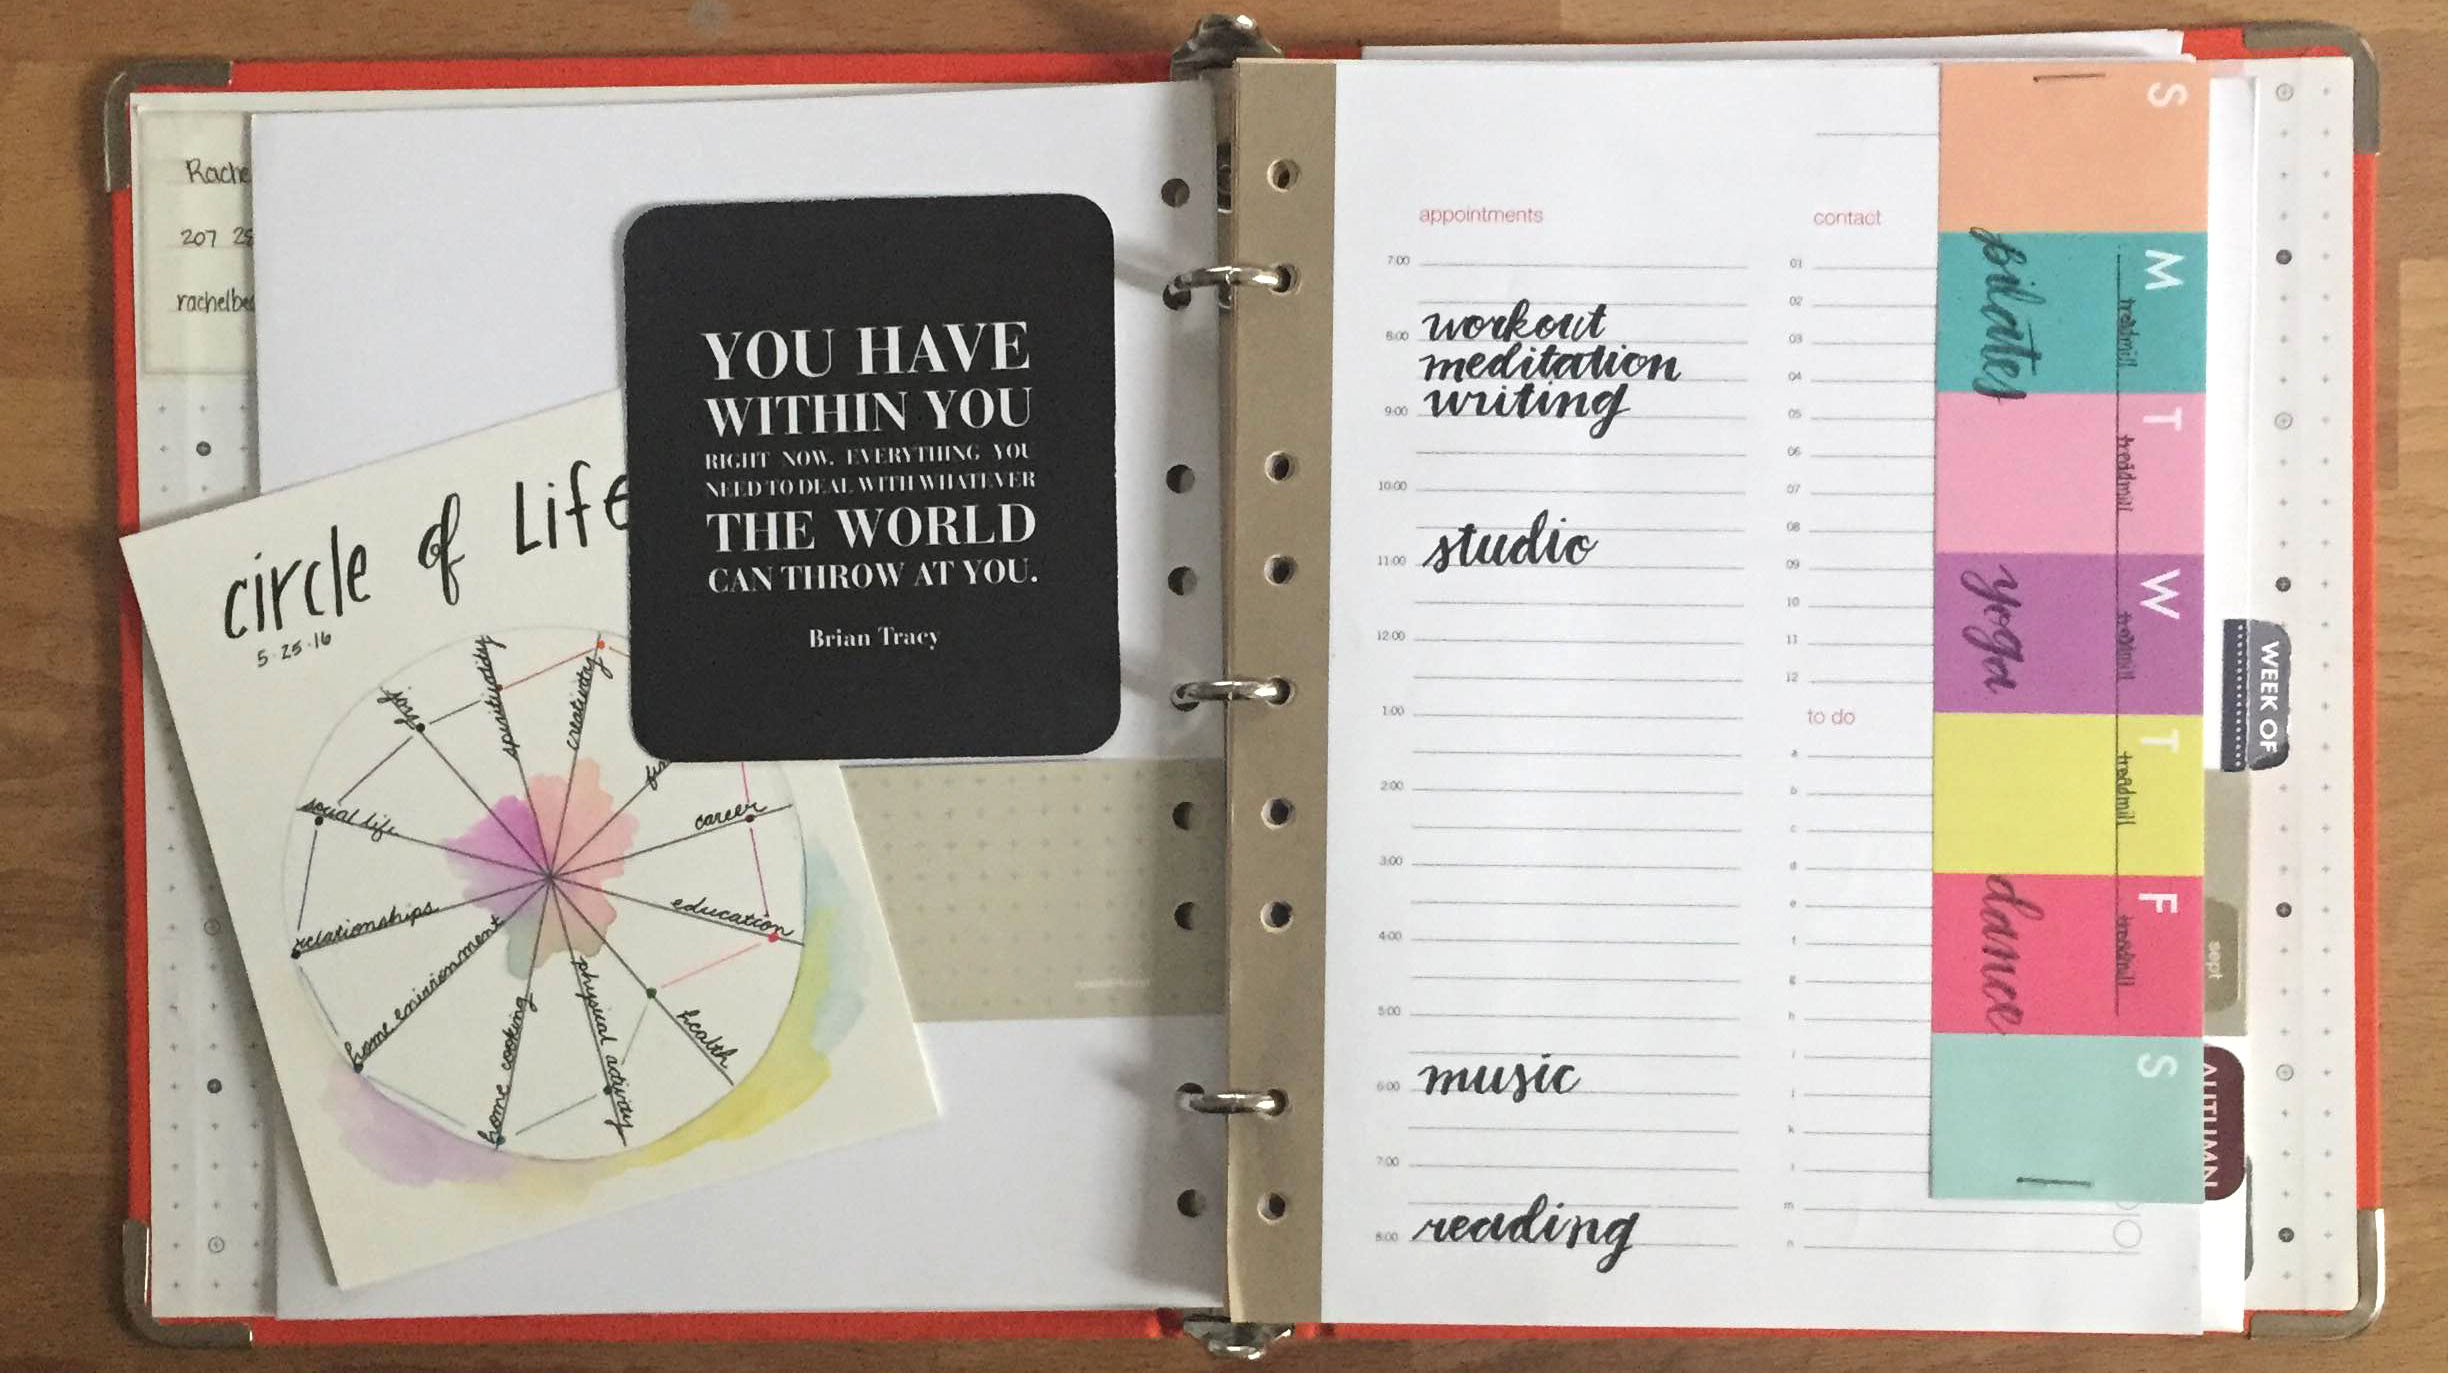 Rache
207 28
rachelbe
circle of Life
5·25·16
joy
spirituality
creativity
career
education
health
physical activity
home cooking
home environment
relationships
social life
YOU HAVE
WITHIN YOU
RIGHT NOW, EVERYTHING YOU
NEED TO DEAL WITH WHATEVER
THE WORLD
CAN THROW AT YOU.
Brian Tracy
appointments
7:00
workout
8:00
meditation
writing
9:00
10:00
studio
11:00
12:00
1:00
2:00
3:00
4:00
5:00
music
6:00
7:00
reading
8:00
contact
01
02
03
04
05
06
07
08
09
10
11
12
to do
a
b
c
d
e
f
g
h
i
j
k
l
m
n
S
M
treadmill
pilates
T
treadmill
W
treadmill
yoga
T
treadmill
F
treadmill
dance
S
WEEK OF
sept
AUTUMN